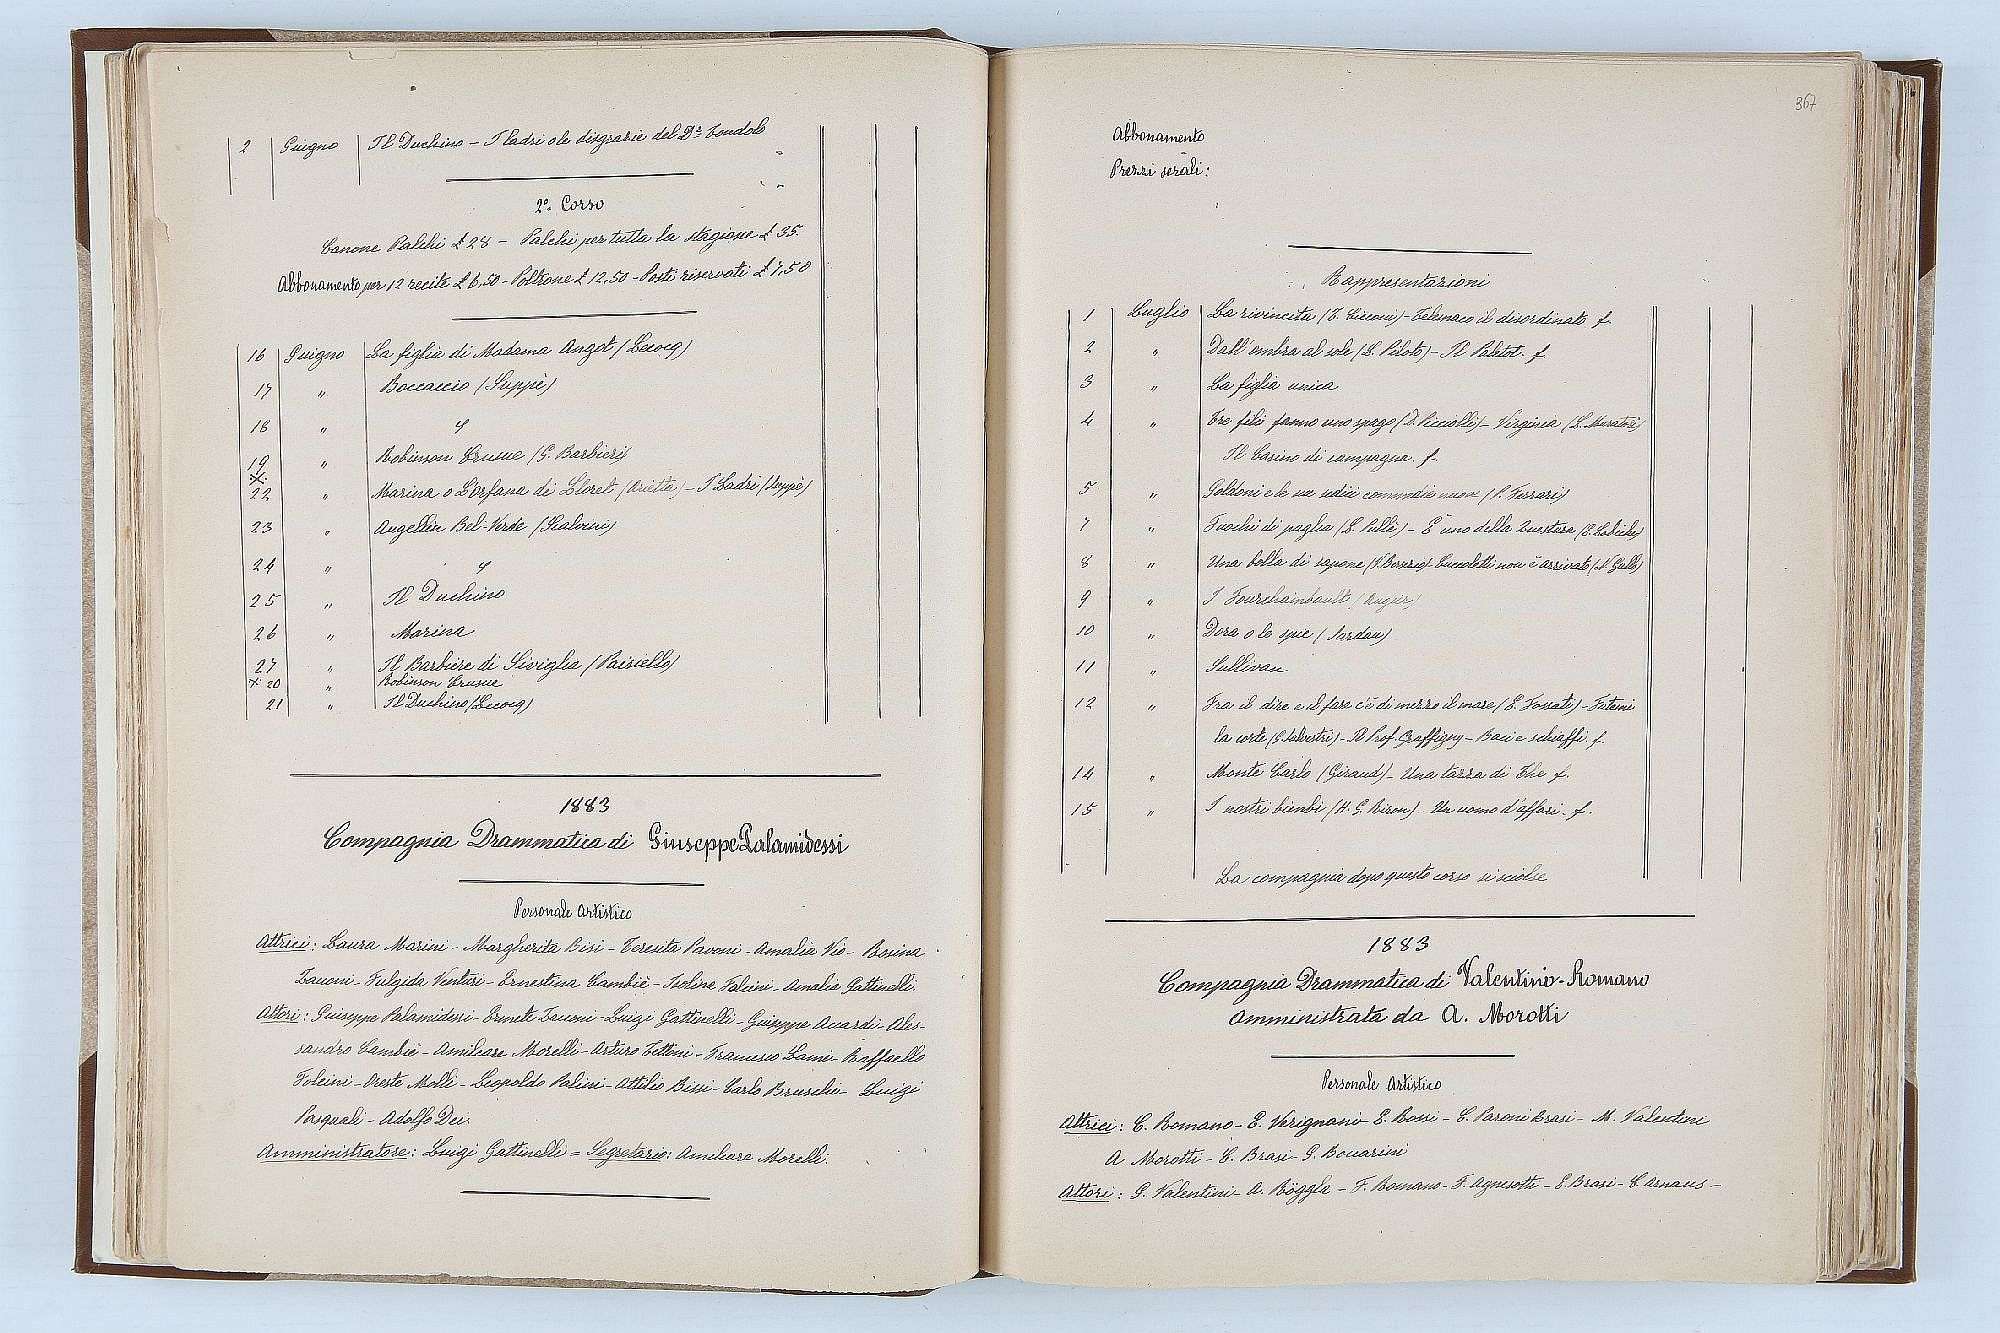 2 Giugno Il Duchino - I ladri o le disgrazie del Dr. Tondolo
2º Corso
Canone Palchi £ 28 - Palchi per tutta la stagione £ 35.
Abbonamento per 12 recite £ 6,50 - Poltrone £ 12,50 - Posti riservati £ 7,50
16 Giugno La figlia di Madama Angot (Lecocq)
17 " Boccaccio (Suppè)
18 " φ
19 " Robinson Crusuè (G. Barbieri)
22 " Marina o L'orfana di Lloret (Arietta) - I Ladri (Suppè)
23 " Augellin Bel-Verde (Scalvini)
24 " φ
25 " Il Duchino
26 " Marina
27 " Il Barbiere di Siviglia (Paisiello)
20 " Robinson Crusuè
21 " Il Duchino (Lecocq)
1883
Compagnia Drammatica di Giuseppe Palamidessi
Personale Artistico
Attrici: Laura Marini - Margherita Bisi - Teresita Pavoni - Amalia Vio - Rosina
Zauoni - Fulgida Venturi - Ernestina Cambiè - Isolina Falcini - Amalia Gattinelli.
Attori: Giuseppe Palamidessi - Ermete Zauoni - Luigi Gattinelli - Giuseppe Anardi - Ales-
sandro Cambiè - Amilcare Morelli - Arturo Tettoni - Francesco Lami - Raffaello
Falcini - Oreste Molli - Leopoldo Palini - Attilio Bissi - Carlo Bruschi - Luigi
Pasquali - Adolfo Dei.
Amministratore: Luigi Gattinelli = Segretario: Amilcare Morelli.
367
Abbonamento
Prezzi serali:
Rappresentazioni
1 Luglio La rivincita (T. Cicconi) - Telemaco il disordinato f.
2 " Dall'ombra al sole (L. Pilotto) - Il Paletot. f
3 " La figlia unica
4 " Tre fili fanno uno spago (Piccolli) - Virginia (L. Muratori)
Il Casino di campagna. f.
5 " Goldoni e le sue sedici commedie nuove (P. Ferrari)
7 " Fuochi di paglia (L. Pullè) - È uno della Questura (E. Labiche)
8 " Una bolla di sapone (V. Bersezio) - Cuccoletti non è arrivato
9 " I Fourchambault (Augier)
10 " Dora o le spie (Sardou)
11 " Sullivan
12 " Fra il dire e il fare c'è di mezzo il mare (E. Fossati) - Fatemi
la corte (G. Salvestri) - Il Prof. Graffigny - Baci e schiaffi f.
14 " Monte Carlo (Giraud) - Una tazza di The f.
15 " I nostri bimbi (H. G. Biron) - Un uomo d'affari - f.
La compagnia dopo questo corso si sciolse
1883
Compagnia Drammatica di Valentini-Romano
Amministrata da A. Morotti
Personale Artistico
Attrici: C. Romano - E. Verignani - E. Rossi - C. Paroni Brasi - M. Valentini
A Morotti - C. Brasi - G. Boccarini
Attori: G. Valentini - A. Böggle - F. Romano - F. Agnesotti - E Brasi - C Arnaus -